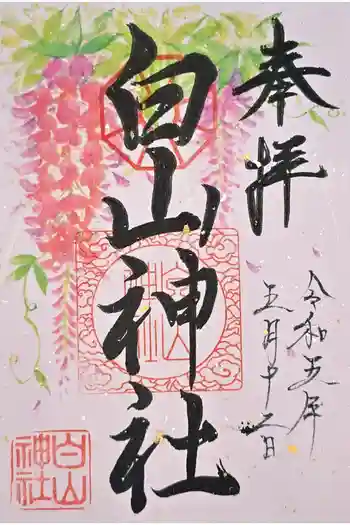 奉拝
令和五年
五月十二日
白山神社
白山
神社